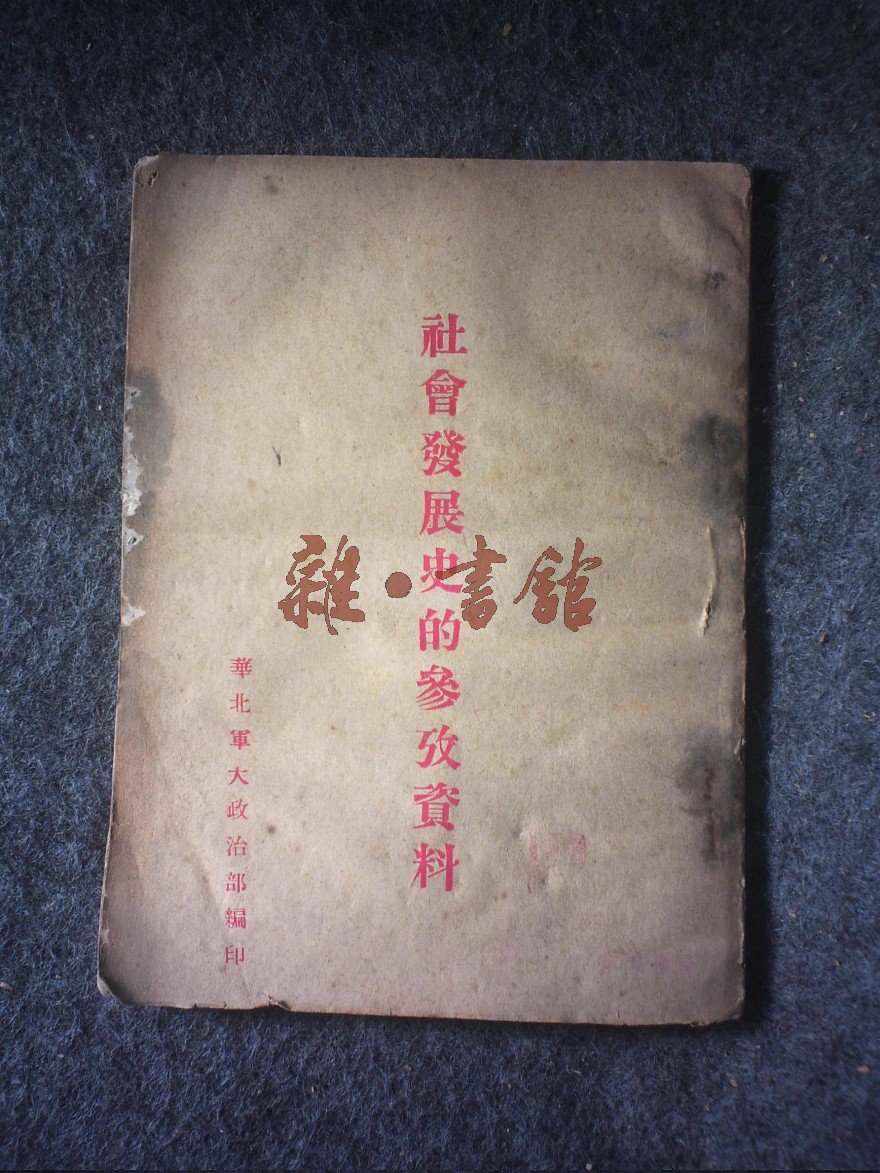 社會發展史的參攷資料
華北軍大政治部編印
雜·書館